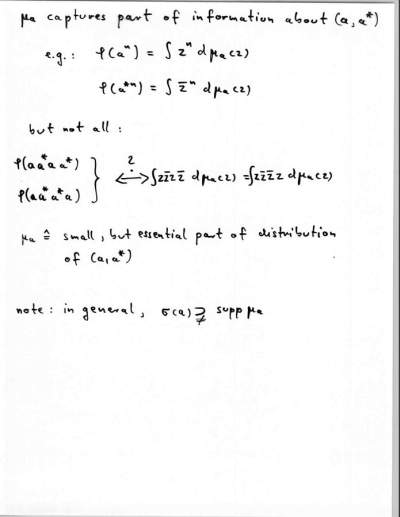 μa captures part of information about (a, a*)
e.g.: φ(aⁿ) = ∫ zⁿ dμa(z)
φ(a*ⁿ) = ∫ z̄ⁿ dμa(z)
but not all:
φ(aa*aa*) } ? ⟷ ∫zz̄zz̄ dμa(z) = ∫zz̄z̄z dμa(z)
φ(aa*a*a)
μa ≙ small, but essential part of distribution
of (a, a*)
note: in general, σ(a) ⊋ supp μa